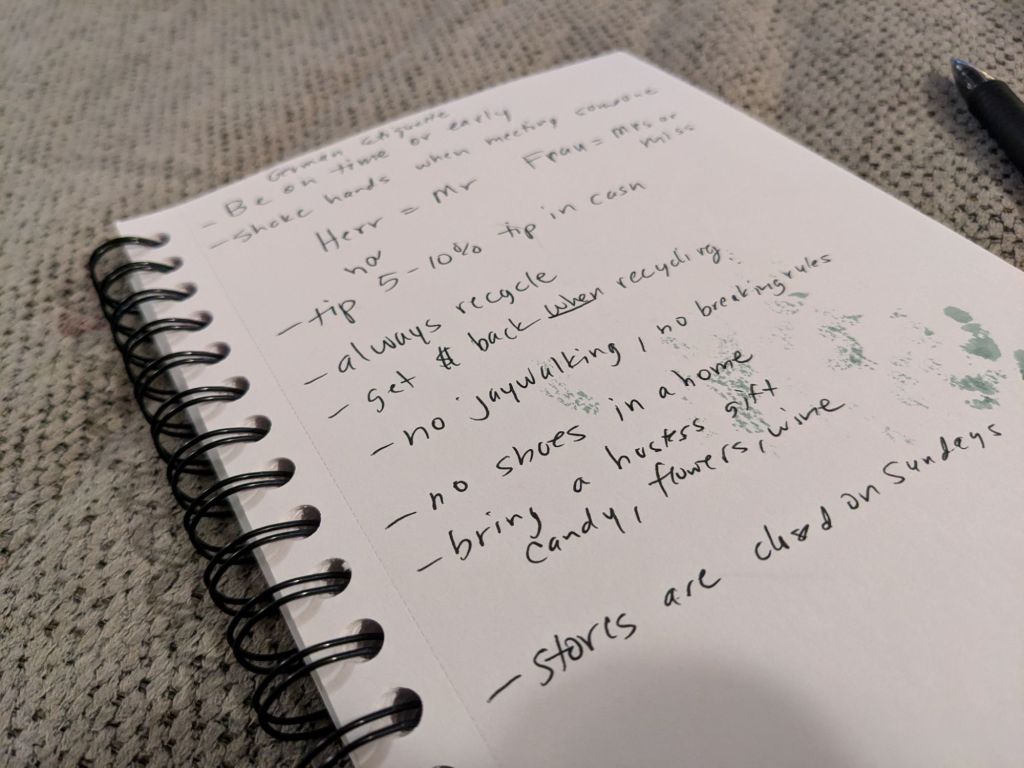 German Etiquette
- Be on time or early
- shake hands when meeting someone
Herr = Mr Frau = Mrs or
miss
not
- tip 5-10% tip in cash
- always recycle
- get $ back when recycling.
- no jaywalking, no breaking rules
- no shoes in a home
- bring a hostess gift
candy, flowers, wine
- stores are closed on Sundays